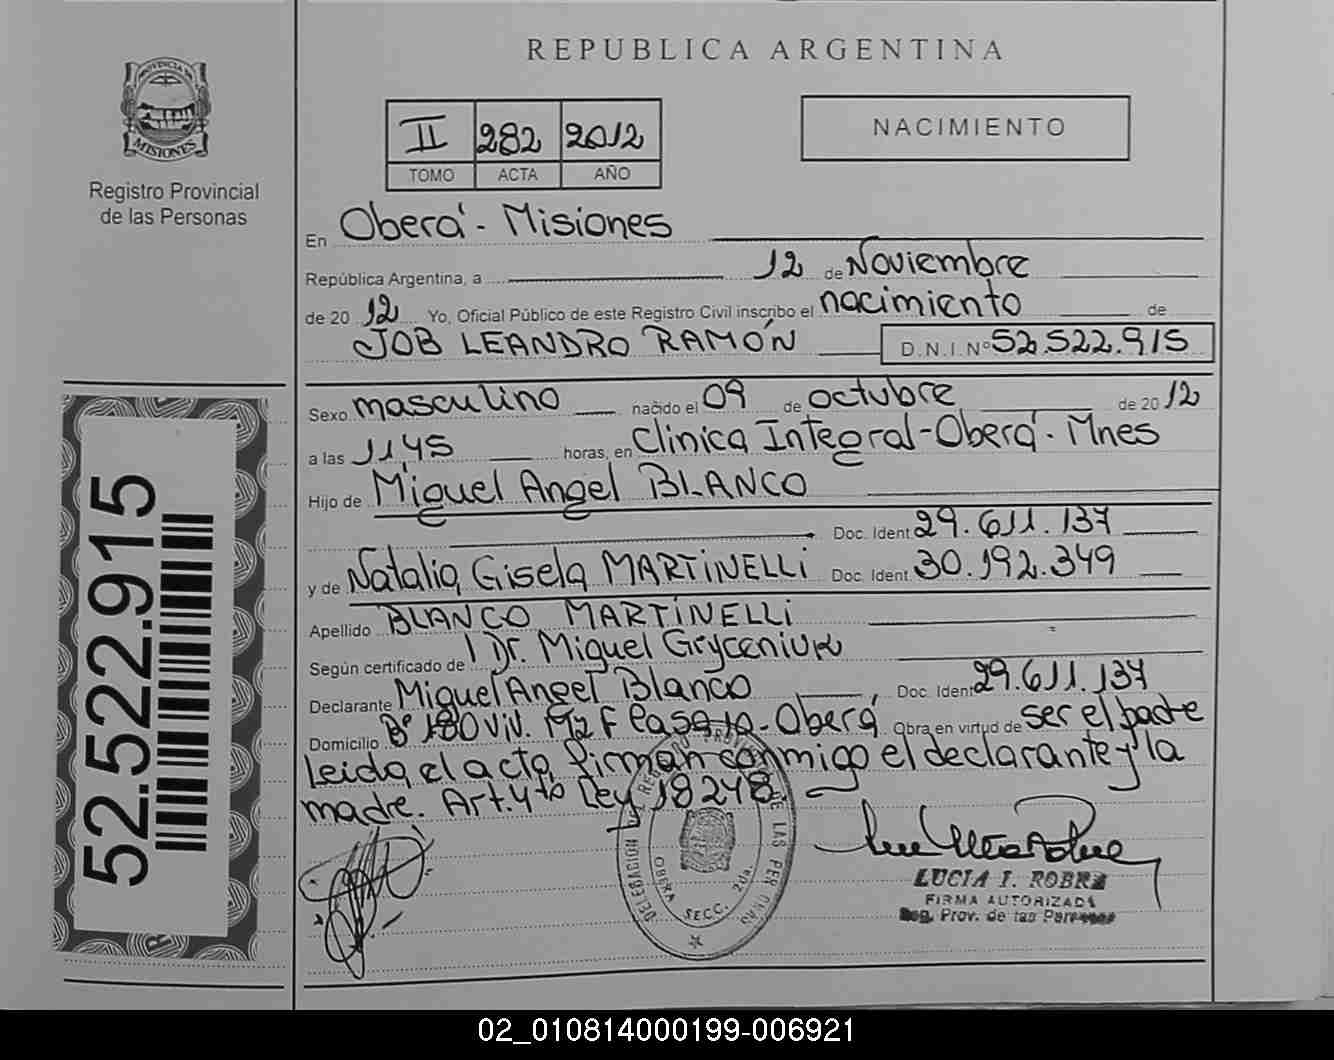 PROVINCIA DE
MISIONES
Registro Provincial
de las Personas
REPUBLICA ARGENTINA
II 282 2012
TOMO ACTA AÑO
NACIMIENTO
En Oberá - Misiones
República Argentina, a 12 de Noviembre
de 20 12 Yo, Oficial Público de este Registro Civil inscribo el nacimiento de
JOB LEANDRO RAMÓN D.N.I. Nº 52.522.915
Sexo masculino nacido el 09 de octubre de 20 12
a las 1145 horas, en Clinica Integral-Oberá - Mnes
Hijo de Miguel Angel BLANCO
Doc. Ident 29.611.137
y de Natalia Gisela MARTiNELLi Doc. Ident. 30.192.349
Apellido BLANCO MARTiNELLi
Según certificado de Dr. Miguel Gryceniuk
Declarante Miguel Angel Blanco Doc. Ident 29.611.137
Domicilio Bº 180 Viv. Mz F Casa - Oberá Obra en virtud de ser el padre
Leida el acta firman conmigo el declarante y la
madre. Art. 4to Ley 18248
52.522.915
DELEGACION DEL REGISTRO PROVINCIAL DE LAS PERSONAS
OBERA SECC. 2da.
LUCIA I. ROBRA
FIRMA AUTORIZADA
Reg. Prov. de las Personas
02_010814000199-006921